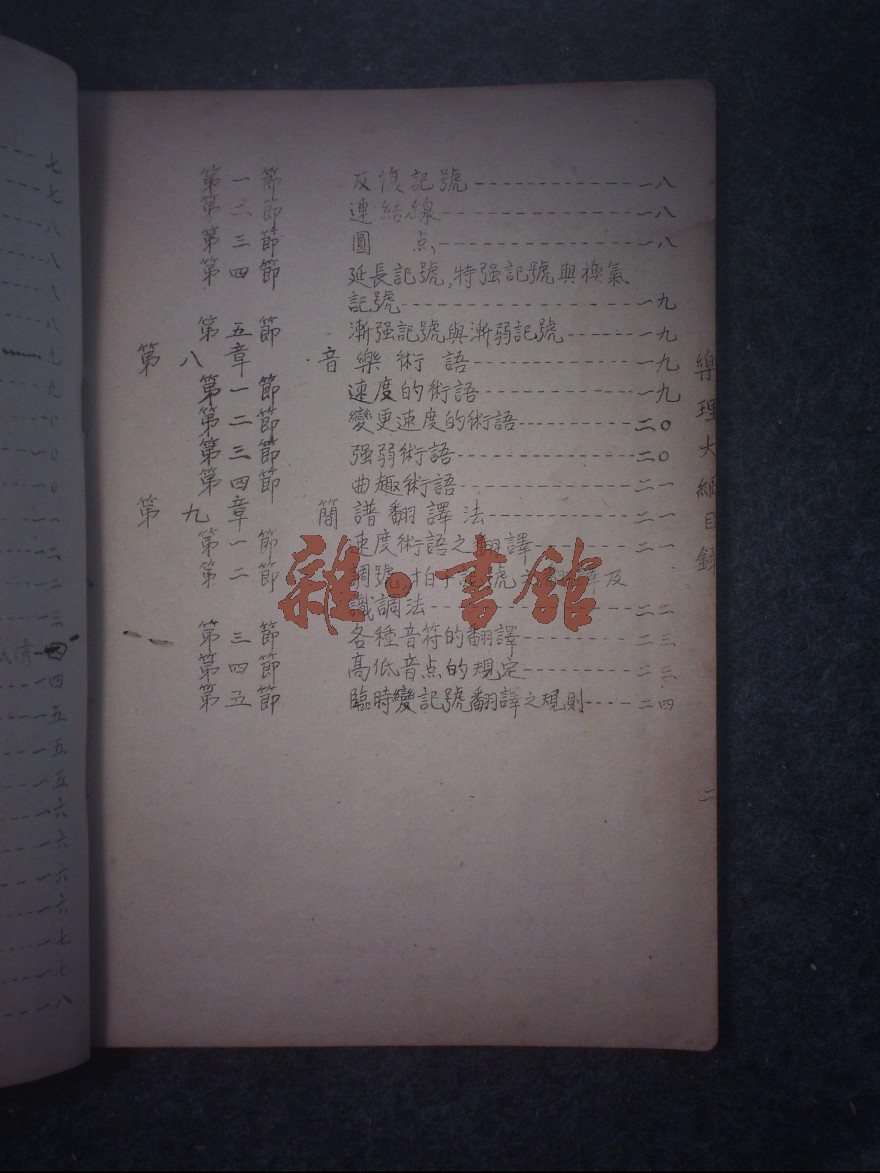 第一節 反復記號 一八
第二節 連結線 一八
第三節 圓 点 一八
第四節 延長記號,特强記號與換氣
記號 一九
第五節 漸强記號與漸弱記號 一九
第八章 音樂術語 一九
第一節 速度的術語 一九
第二節 變更速度的術語 二〇
第三節 强弱術語 二〇
第四節 曲趣術語 二一
第九章 簡譜翻譯法 二一
第一節 速度術語之翻譯 二一
第二節 調號,拍子記號 及
識調法 二二
第三節 各種音符的翻譯 二三
第四節 高低音点的規定 二三
第五節 臨時變記號翻譯之規則 二四
樂理大綱目錄
二
雜·書館
七
七
八
八
八
八
九
九
〇
〇
一
一
一二
一二
一三
一四
一四
一五
一五
一五
一六
一六
一六
一六
一七
一七
一八